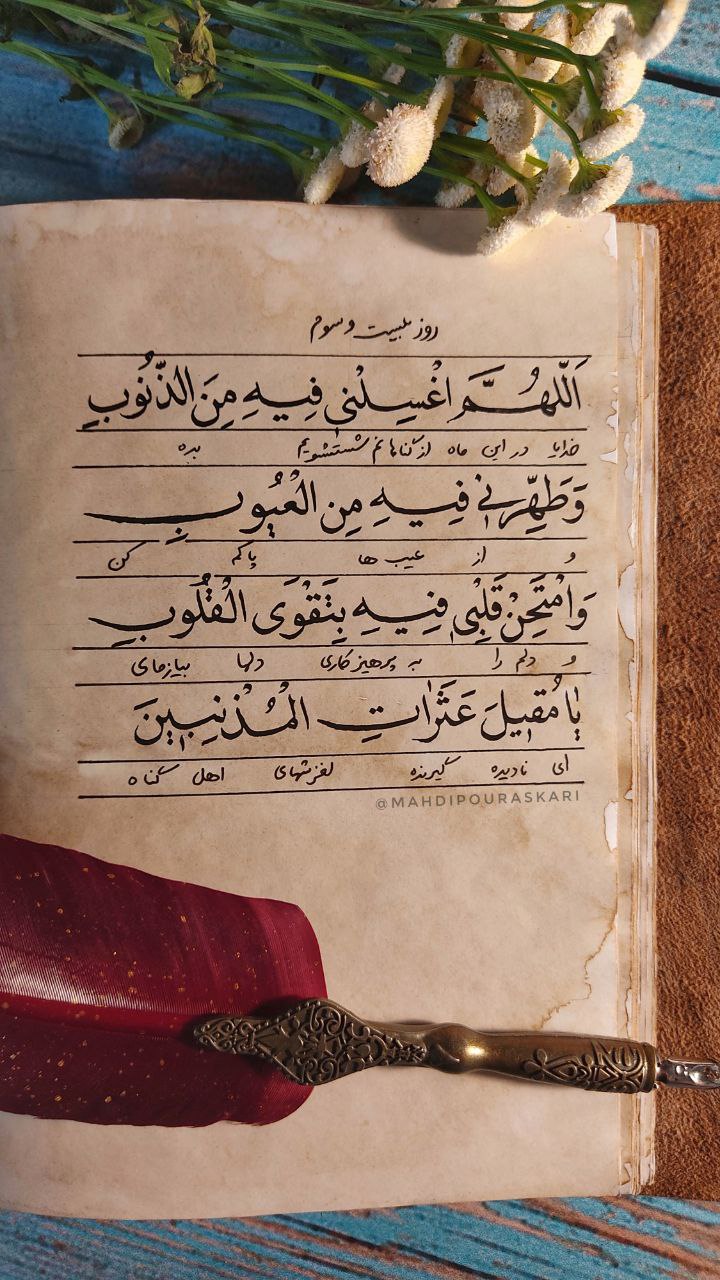 روز بیست و سوم
اَللّهُمَّ اغْسِلْنی فِیهِ مِنَ الذُّنُوبِ
خدایا در این ماه از گناهانم شستشویم بده
وَطَهِّرْنی فِیهِ مِنَ الْعُیُوبِ
و از عیب ها پاکم کن
وَامْتَحِنْ قَلْبِی فِیهِ بِتَقْوَى الْقُلُوبِ
و دلم را به پرهیزکاری دلها بیازمای
یٰا مُقِیلَ عَثَرٰاتِ الْمُذْنِبِینَ
ای نادیده گیرنده لغزشهای اهل گناه
@MAHDIPOURASKARI